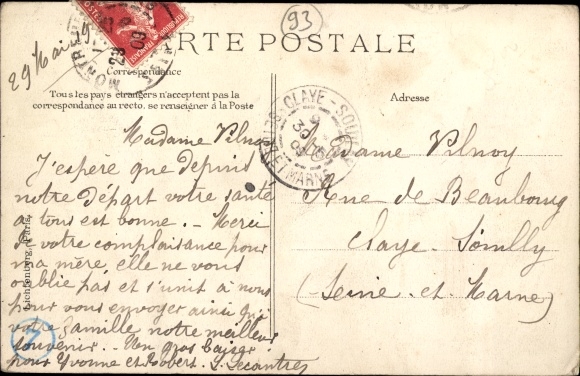 93
CARTE POSTALE
29 Mai 9
Correspondance
Tous les pays étrangers n'acceptent pas la
correspondance au recto. se renseigner à la Poste
Adresse
Madame Vilnoy
J'espère que depuis
notre départ votre santé
à tous est bonne. - Merci
de votre complaisance pour
ma mère elle ne vous
oublie pas et s'unit à nous
pour vous envoyer ainsi qu'à
votre famille notre meilleur
souvenir. Un gros baiser
pour Yvonne et Robert. L. Lecantre
Madame Vilnoy
Rue de Beaubourg
Claye-Souilly
(Seine et Marne)
CLAYE-SOUILLY
30
09
ET MARNE
Lichtenberg, Paris.
7